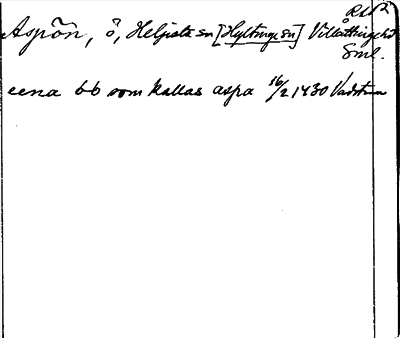 Aspön, ö, Helgesta sn [Hyltinge sn] Villåttinge hd
Sml.
eena bb som kallas aspa 16/2 1430 Vadstena